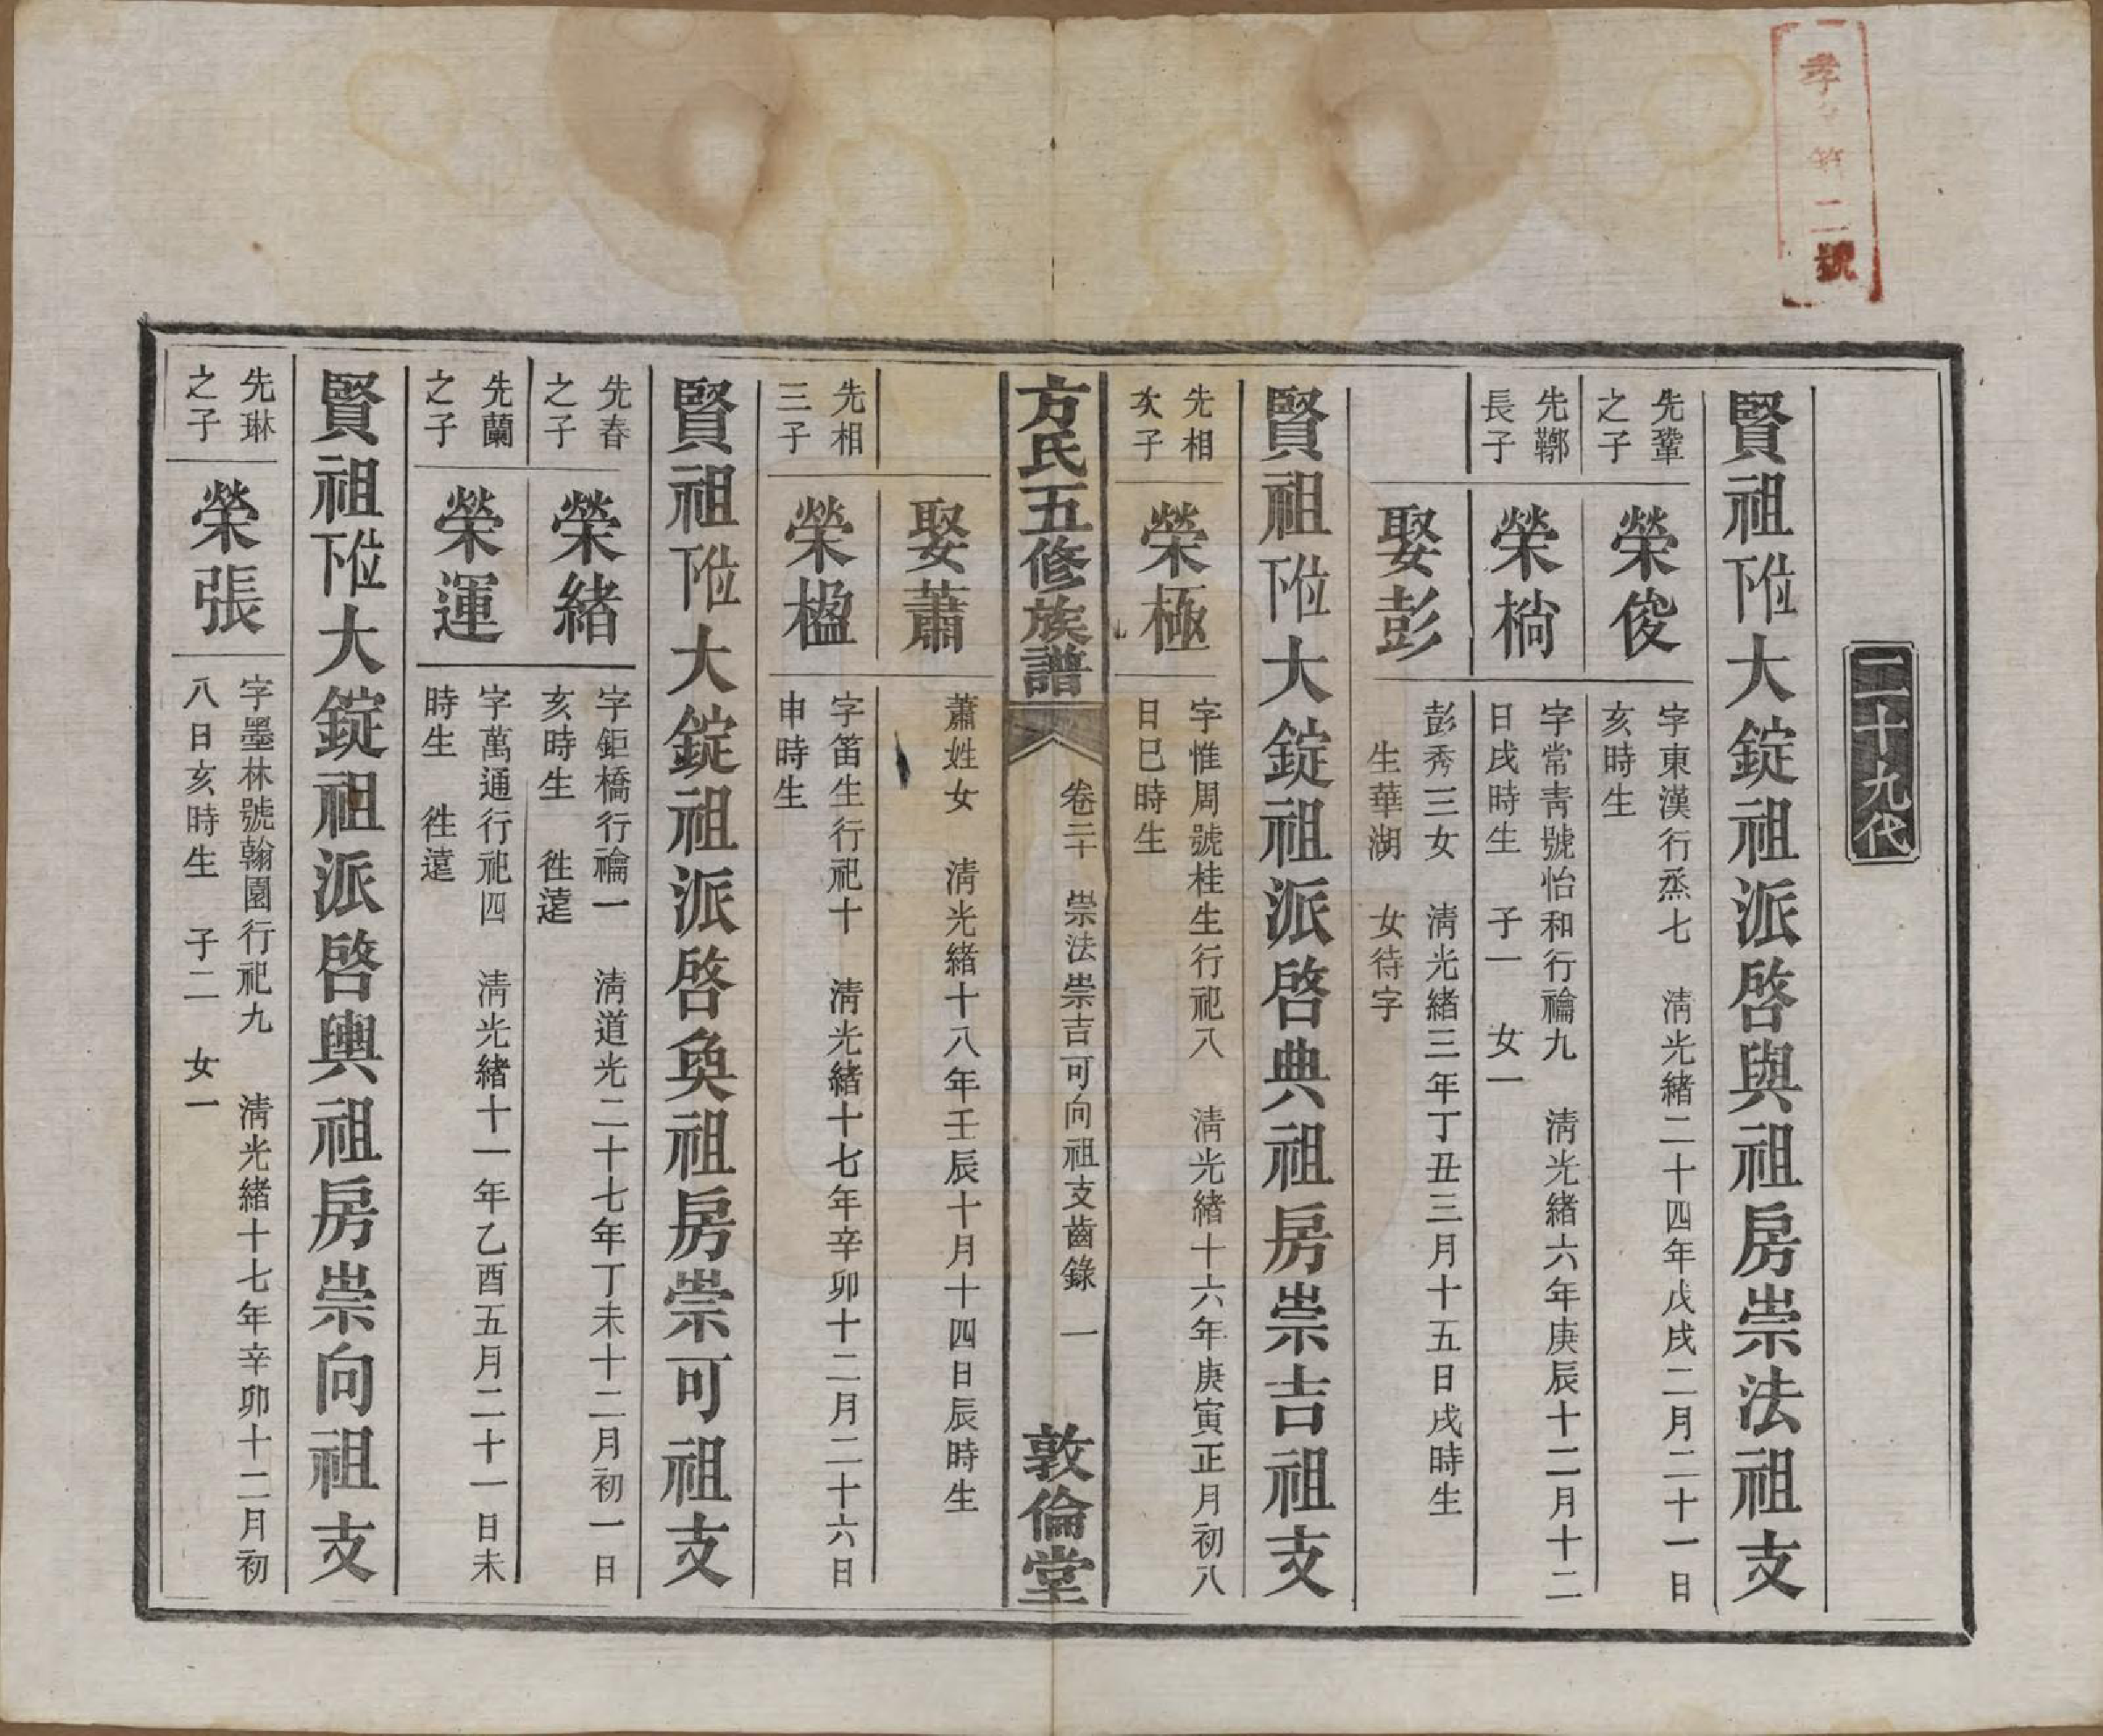 孝字第二號
二十九代
賢祖位下大錠祖派啓與祖房崇法祖支
先鞏之子
榮俊
字東漢行烝七 淸光緒二十四年戊戌二月二十一日
亥時生
先鄴長子
榮椅
字常靑號怡和行禴九 淸光緒六年庚辰十二月十二
日戌時生 子一 女一
娶彭
彭秀三女 淸光緒三年丁丑三月十五日戌時生
生華湖 女待字
賢祖位下大錠祖派啓典祖房崇吉祖支
先相次子
榮極
字惟周號桂生行祀八 淸光緒十六年庚寅正月初八
日巳時生
方氏五修族譜 卷二十 崇法崇吉可向祖支齒錄 一 敦倫堂
娶蕭
蕭姓女 淸光緒十八年壬辰十月十四日辰時生
先相三子
榮楹
字笛生行祀十 淸光緒十七年辛卯十二月二十六日
申時生
賢祖位下大錠祖派啓奐祖房崇可祖支
先春之子
榮緒
字鉅橋行禴一 淸道光二十七年丁未十二月初一日
亥時生 徃遠
先蘭之子
榮運
字萬通行祀四 淸光緒十一年乙酉五月二十一日未
時生 徃遠
賢祖位下大錠祖派啓輿祖房崇向祖支
先琳之子
榮張
字墨林號翰園行祀九 淸光緒十七年辛卯十二月初
八日亥時生 子二 女一